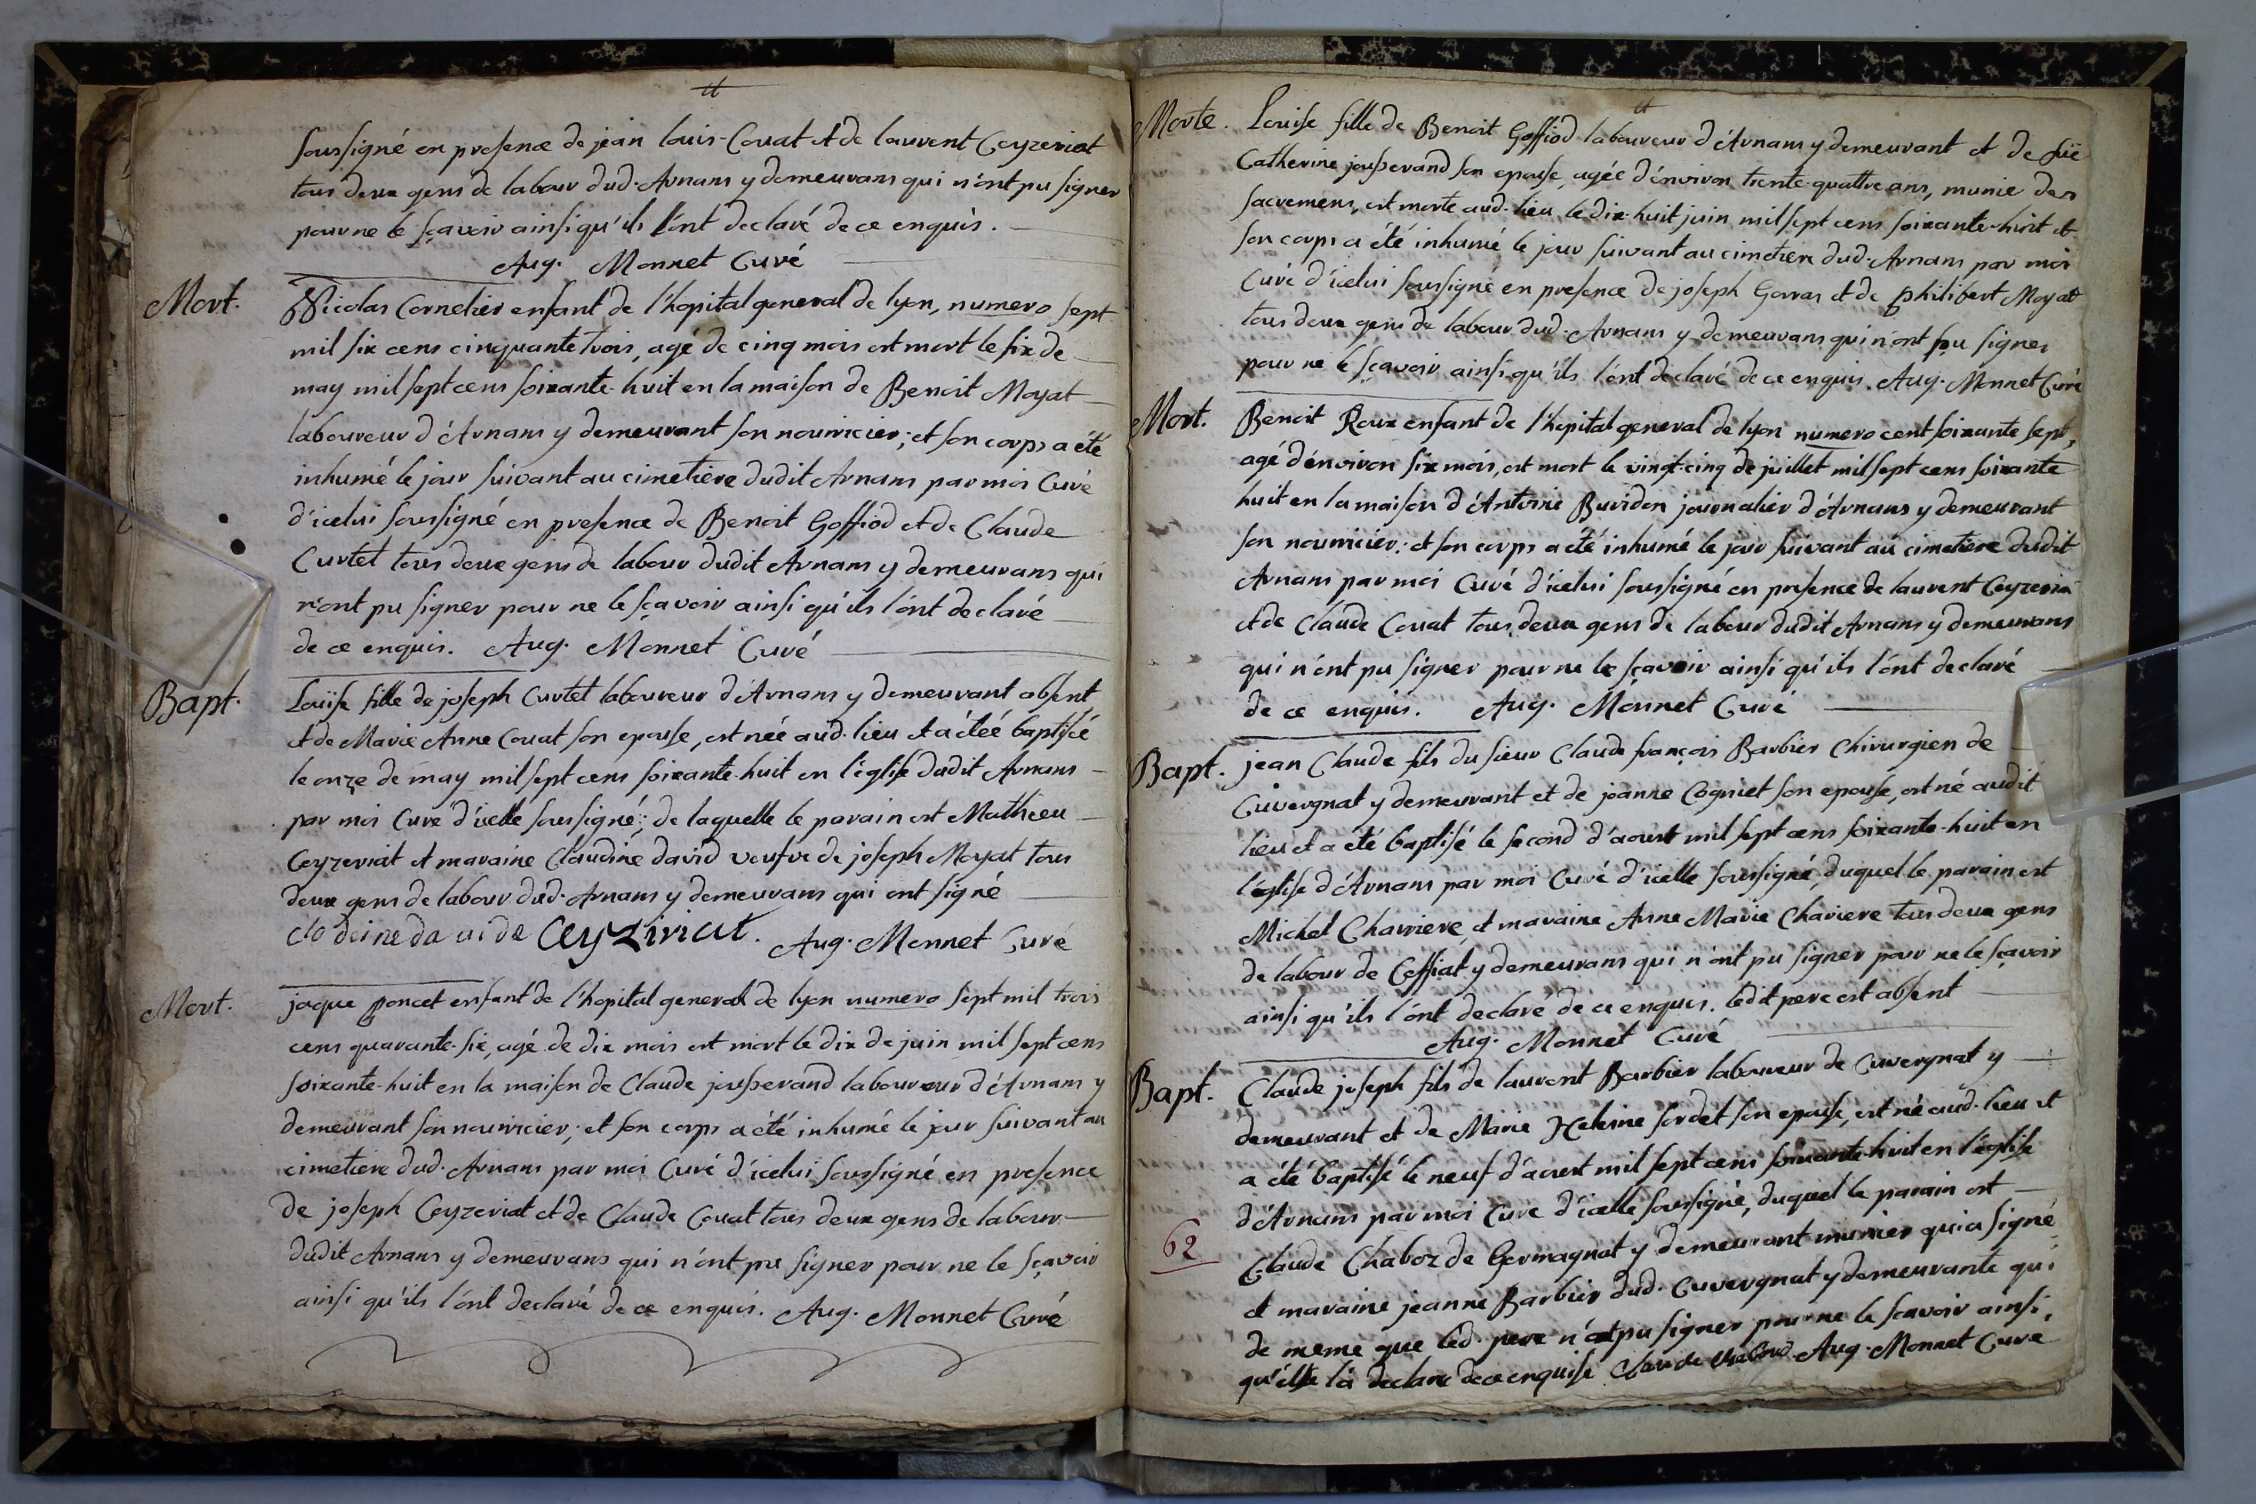 soussigné en presence de jean louis Couat et de laurent Ceyzeriat
tous deux gens de labour dud. Arnans y demeurans qui n'ont pu signer
pour ne le sçavoir ainsi qu'ils l'ont declaré de ce enquis.
Aug. Monnet Curé
Mort.
Nicolas Cornelier enfant de l'hopital general de lyon, numero sept
mil six cens cinquante trois, agé de cinq mois est mort le six de
may mil sept cens soixante-huit en la maison de Benoit Moyat
laboureur d'Arnans y demeurant son nourricier; et son corps a été
inhumé le jour suivant au cimetiere dudit Arnans par moi Curé
d'icelui soussigné en presence de Benoit Goffiod et de Claude
Curtet tous deux gens de labour dudit Arnans y demeurans qui
n'ont pu signer pour ne le sçavoir ainsi qu'ils l'ont declaré
de ce enquis. Aug. Monnet Curé
Bapt.
Loüise fille de joseph Curtet laboureur d'Arnans y demeurant absent
et de Marie Anne Couat son epouse, est née aud. lieu et a étéé baptisée
le onze de may mil sept cens soixante-huit en l'eglise dudit Arnans
par moi Curé d'icelle soussigné; de laquelle le parain est Mathieu
Ceyzeriat et maraine Claudine david veufve de joseph Moyat tous
deux gens de labour dud. Arnans y demeurans qui ont signé
clodinedauide Ceyziriat. Aug. Monnet Curé
Mort.
jaque poncet enfant de l'hopital general de lyon numero sept mil trois
cens quarante-six, agé de dix mois est mort le dix de juin mil sept cens
soixante-huit en la maison de Claude jousserand laboureur d'Arnans y
demeurant son nourricier; et son corps a été inhumé le jour suivant au
cimetiere dud. Arnans par moi Curé d'icelui soussigné en presence
de joseph Ceyzeriat et de Claude Couat tous deux gens de labour
dudit Arnans y demeurans qui n'ont pu signer pour ne le sçavoir
ainsi qu'ils l'ont declaré de ce enquis. Aug. Monnet Curé
Morte.
Louise fille de Benoit Goffiod laboureur d'Arnans y demeurant et de
Catherine jousserand son epouse, agée d'environ trente-quattre ans, munie des
sacremens, est morte aud. lieu le dix-huit juin mil sept cens soixante-huit et
son corps a été inhumé le jour suivant au cimetiere dud. Arnans par moi
Curé d'icelui soussigné en presence de joseph Gorras et de philibert Moyat
tous deux gens de labour dud. Arnans y demeurans qui n'ont pu signer
pour ne le sçavoir ainsi qu'ils l'ont declaré de ce enquis. Aug. Monnet Curé
Mort.
Benoit Roux enfant de l'hopital general de lyon numero cent soixante sept,
agé d'environ six mois, est mort le vingt-cinq de juillet mil sept cens soixante
huit en la maison d'Antoine Buridon journalier d'Arnans y demeurant
son nourricier; et son corps a été inhumé le jour suivant au cimetiere dudit
Arnans par moi Curé d'icelui soussigné en presence de laurent Ceyzeriat
et de Claude Couat tous deux gens de labour dudit Arnans y demeurans
qui n'ont pu signer pour ne le sçavoir ainsi qu'ils l'ont declaré
de ce enquis. Aug. Monnet Curé
Bapt.
jean Claude fils du sieur Claude françois Barbier Chirurgien de
Cuvergnat y demeurant et de jeanne Cogniet son epouse, est né audit
lieu et a été baptisé le second d'aoust mil sept cens soixante-huit en
l'eglise d'Arnans par moi Curé d'icelle soussigné, duquel le parain est
Michel Charriere, et maraine Anne Marie Chariere tous deux gens
de labour de Ceffiat y demeurans qui n'ont pu signer pour ne le sçavoir
ainsi qu'ils l'ont declaré de ce enquis. ledit pere est absent
Aug. Monnet Curé
Bapt.
Claude joseph fils de laurent Barbier laboureur de Cuvergnat y
demeurant et de Marie Heleine sordet son epouse, est né aud. lieu et
a été baptisé le neuf d'aoust mil sept cens soixante-huit en l'eglise
d'Arnans par moi Curé d'icelle soussigné, duquel le parain est
62
Claude Chaboz de Germagnat y demeurant munier qui a signé
et maraine jeanne Barbier dud. Cuvergnat y demeurante qui
de meme que led. pere n'ont pu signer pour ne le sçavoir ainsi
qu'elle l'a declaré de ce enquise. Aug. Monnet Curé